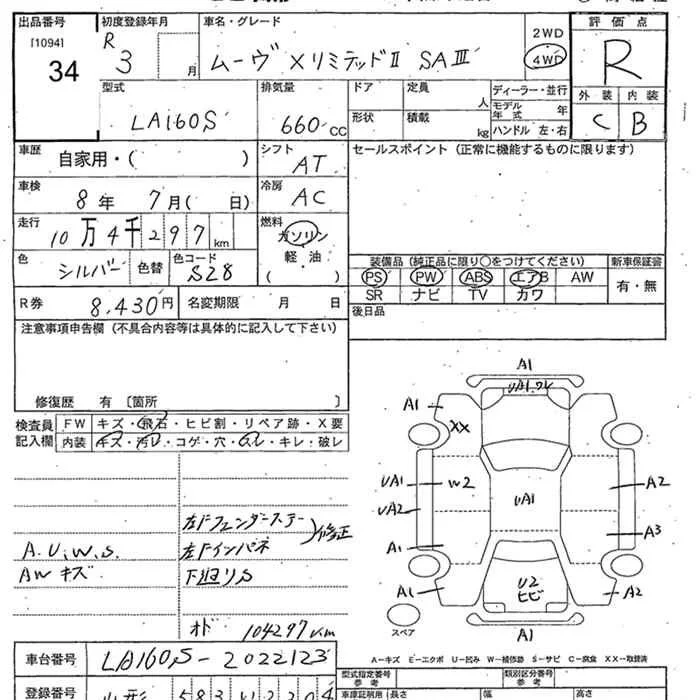 出品番号 初度登録年月 車名・グレード 2WD 評価点
[1094] R 3 月 ムーヴ XリミテッドⅡ SAⅢ 4WD R
34
型式 排気量 ドア 定員 人 ディーラー・並行 外装 内装
LA160S 660 CC 形状 積載 kg モデル年式 年 C B
ハンドル 左・右
車歴 自家用・( ) シフト AT セールスポイント (正常に機能するものに限ります)
車検 8年 7月( 日) 冷房 AC
走行 10万4千297km 燃料 ガソリン
軽油
( )
色 シルバー 色替 色コード S28
装備品 (純正品に限り○をつけてください) 新車保証書
PS PW ABS エアB AW 有・無
SR ナビ TV カワ
R券 8,430円 名変期限 月 日 後日品
注意事項申告欄 (不具合内容等は具体的に記入して下さい)
修復歴 有 〔箇所 〕
検査員記入欄 FW キズ・飛石・ヒビ割・リペア跡・X要
内装 キズ・汚レ・コゲ・穴・スレ・キレ・破レ
左Fフェンダーステー
左Fインパネ 修正
A.U.W.S.
AWキズ 下廻りS
オド 104297km
A1
UA1.ワレ
A1
XX
UA1 W2 UA1 A2
UA2
A1 A3
A1 U2 ヒビ A2
スペア A1
A−キズ E−エクボ U−凹み W−補修跡 S−サビ C−腐食 XX−取替済
車台番号 LA160S-2022123
型式指定番号 類別区分番号
登録番号 山形 583
車庫証明用 長さ 幅 高さ